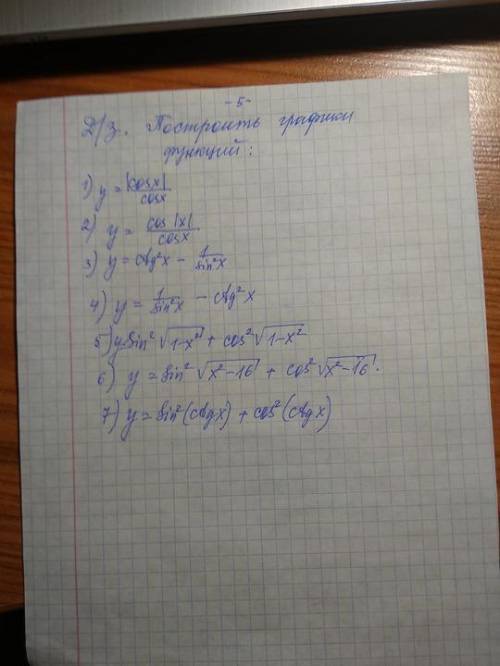 -5-
Д/З. Построить графики
функций:
1) y = |cosx|/cosx
2) y = cos|x|/cosx
3) y = ctg²x - 1/sin²x
4) y = 1/sin²x - ctg²x
5) y = sin²√(1-x²) + cos²√(1-x²)
6) y = sin²√(x²-16) + cos²√(x²-16).
7) y = sin²(ctgx) + cos²(ctgx)